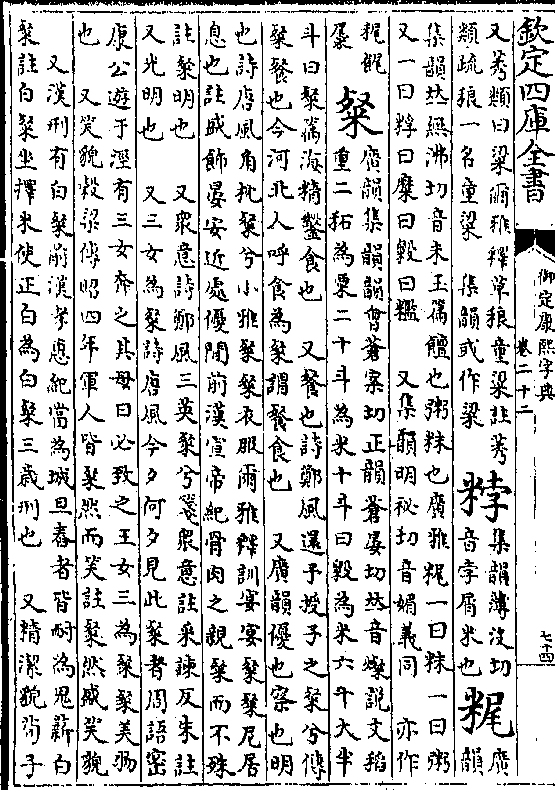 欽定四庫全書
御定康熙字典
卷二十二
七十四
又莠類曰粱爾雅釋草稂童粱註莠
類疏稂一名童粱 集韻或作梁 𥹸集韻薄没切
音孛屑米也 䊊廣韻
集韻𠀤無沸切音未玉篇饘也粥䊳也廣雅䊊一曰䊳一曰粥
又一曰𥹸曰糜曰䊔曰糷 又集韻明祕切音媚義同 亦作
粎𩱱
䉼 粲廣韻集韻韻會蒼案切正韻蒼晏切𠀤音㻮說文稻
重二䄷為粟二十斗為米十斗曰毇為米六斗大半
斗曰粲篇海精鑿食也 又餐也詩鄭風還予授子之粲兮傳
粲餐也今河北人呼食為粲謂餐食也 又廣韻優也察也明
也詩唐風角枕粲兮小雅粲粲衣服爾雅釋訓宴宴粲粲尼居
息也註盛飾晏安近處優閒前漢宣帝紀骨肉之親粲而不殊
註粲明也 又衆意詩鄭風三英粲兮箋衆意註采諫反朱註
又光明也 又三女為粲詩唐風今夕何夕見此粲者周語密
康公遊于涇有三女奔之其母曰必致之王女三為粲粲美物
也 又笑貌榖梁傳昭四年軍人皆粲然而笑註粲然盛笑貌
又漢刑有白粲前漢孝惠紀當為城旦舂者皆耐為鬼薪白
粲註白粲坐擇米使正白為白粲三歲刑也 又精潔貌荀子